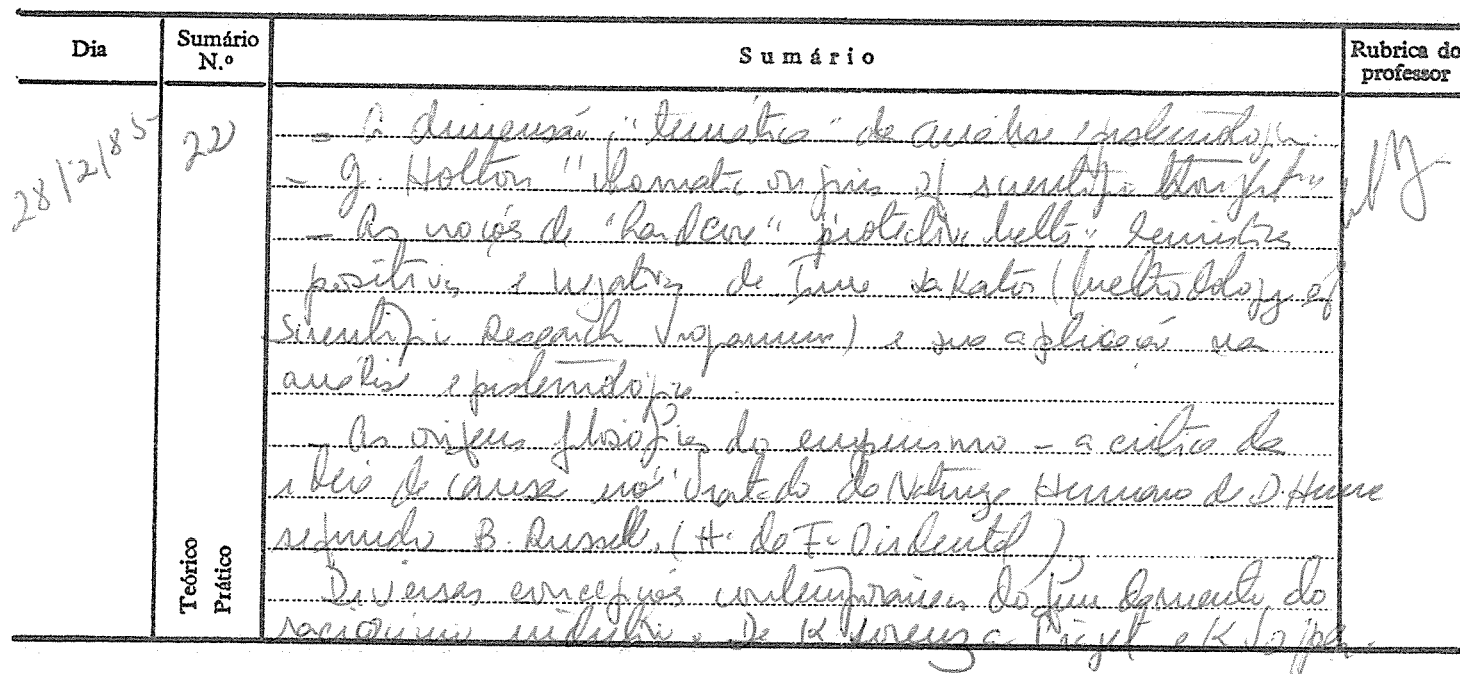 Dia
Sumário N.º
Sumário
Rubrica do professor
28/2/85
22
- A dimensão "temática" da análise epistemológica.
- G. Holton "thematic origins of scientific thought"
- As noções de "hardcore" protective belt" heuristica
positiva e negativa de Imre Lakatos (Methodology of
Scientific Research Programmes) e sua aplicação na
análise epistemológica.
- As origens filosóficas do empirismo - a crítica da
ideia de causa no "Tratado da Natureza Humana de D. Hume
segundo B. Russell. (H. da F. Ocidental).
Diversas concepções contemporâneas do fundamento do
raciocínio indutivo. De K. Lorenz a Piaget e K. Popper.
Teórico
Prático